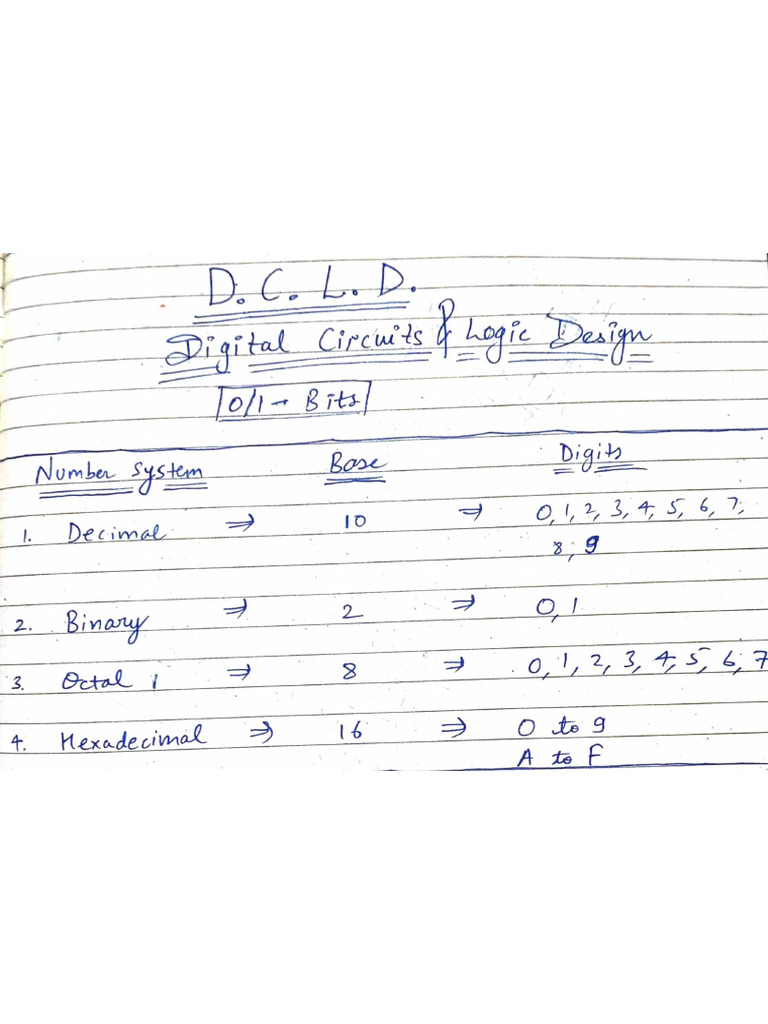 D. C. L. D.
Digital Circuits & Logic Design
0/1 → Bits
Number System Base Digits
1. Decimal ⇒ 10 ⇒ 0, 1, 2, 3, 4, 5, 6, 7,
8, 9
2. Binary ⇒ 2 ⇒ 0, 1
3. Octal ⇒ 8 ⇒ 0, 1, 2, 3, 4, 5, 6, 7
4. Hexadecimal ⇒ 16 ⇒ 0 to 9
A to F